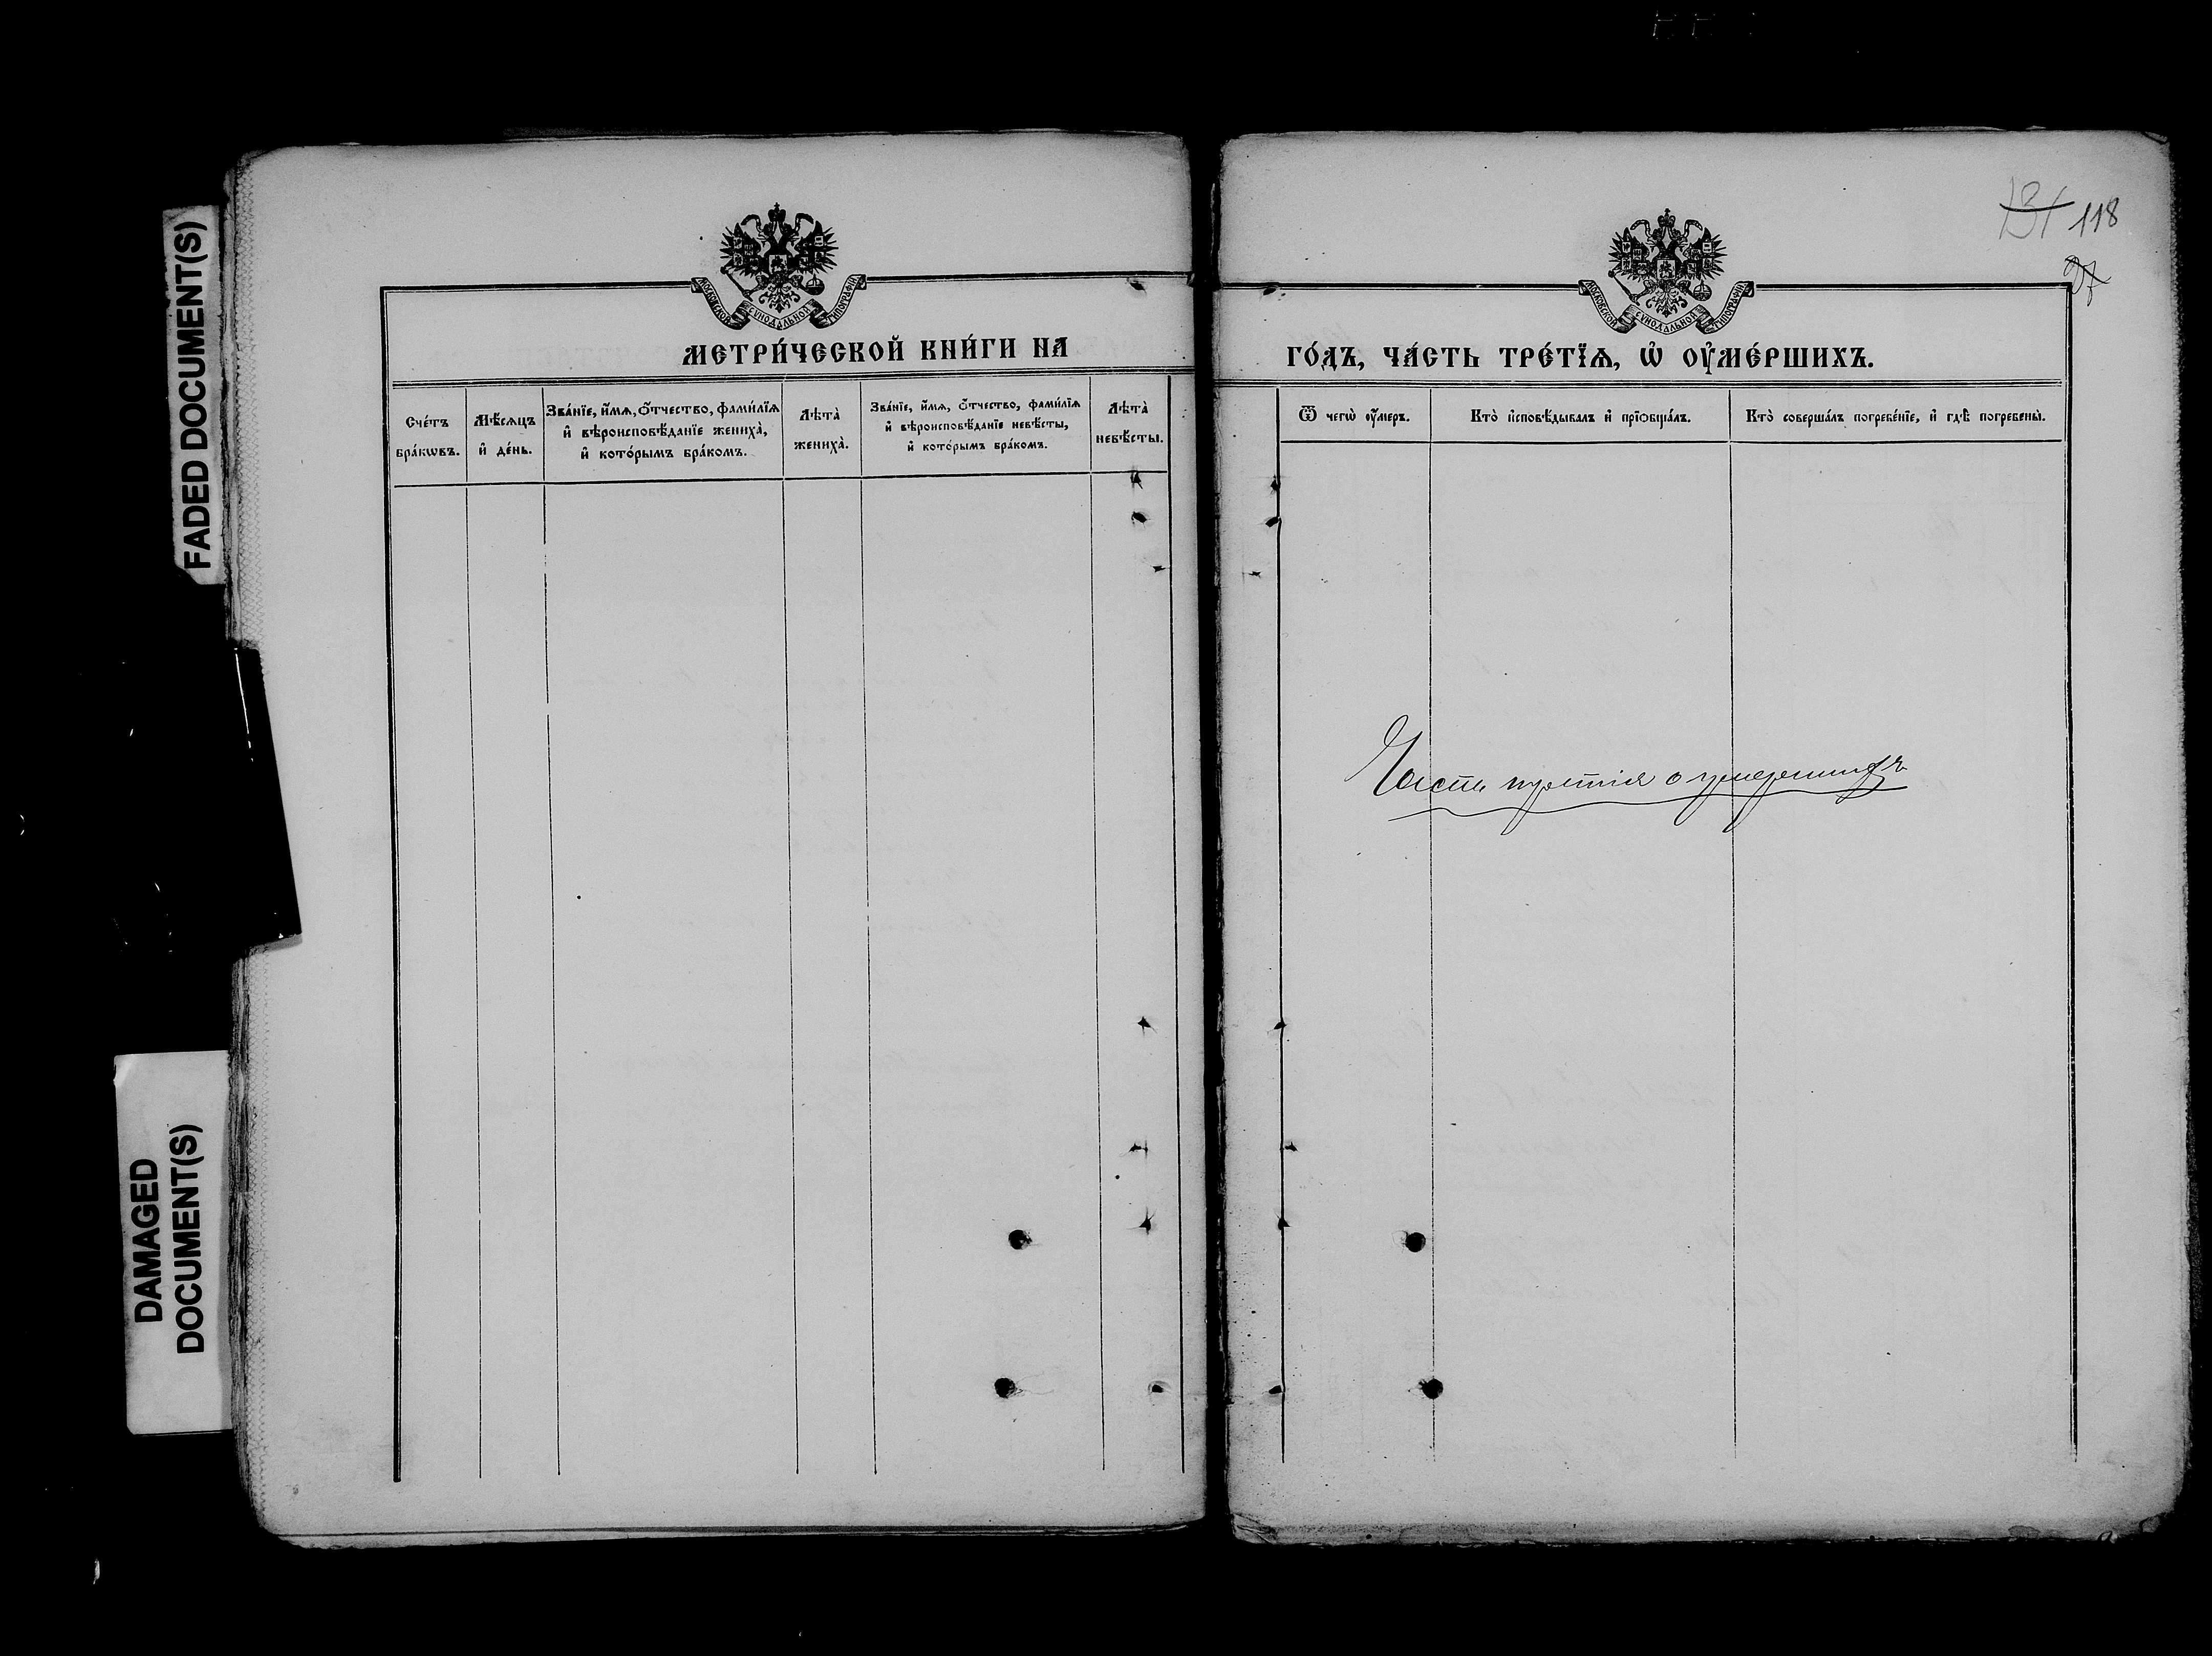 FADED DOCUMENT(S)
DAMAGED
DOCUMENT(S)
МОСКОВСКОЙ СѴНОДАЛЬНОЙ ТИПОГРАФІИ
МЕТРИ́ЧЕСКОЙ КНИ́ГИ НА
Сче́тъ
бра́кѡвъ.
Мѣ́сѧцъ
и҆ де́нь.
Зва́нїе, и҆́мѧ, ѻ҆́тчество, фами́лїѧ
и҆ вѣроисповѣ́данїе жениха̀,
и҆ кото́рымъ бра́комъ.
Лѣ́та̀
жениха̀.
Зва́нїе, и҆́мѧ, ѻ҆́тчество, фами́лїѧ
и҆ вѣроисповѣ́данїе невѣ́сты,
и҆ кото́рымъ бра́комъ.
Лѣ́та̀
невѣ́сты.
131 118
27
МОСКОВСКОЙ СѴНОДАЛЬНОЙ ТИПОГРАФІИ
ГО́ДЪ, ЧА́СТЬ ТРЕ́ТЇѦ, Ѡ҆ ОУ҆МЕ́РШИХЪ.
Ѿ чегѡ̀ оу҆́меръ.
Кто̀ и҆сповѣ́дывалъ и҆ прїѡбща́лъ.
Кто̀ соверша́лъ погребе́нїе, и҆ гдѣ̀ погребены̀.
Часть третія о умершихъ